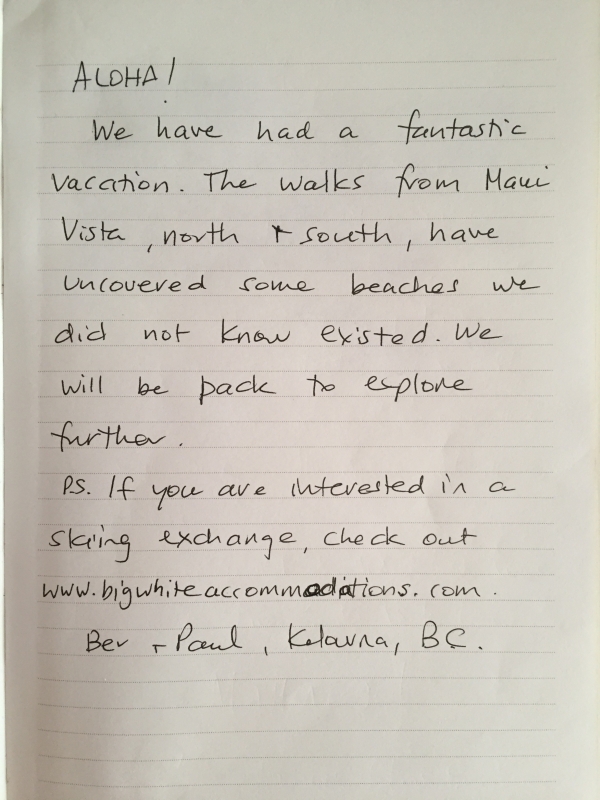 ALOHA!
We have had a fantastic
vacation. The walks from Maui
Vista, north + south, have
uncovered some beaches we
did not know existed. We
will be back to explore
further.
P.S. If you are interested in a
skiing exchange, check out
www.bigwhiteaccommodations.com.
Bev + Paul, Kelowna, BC.